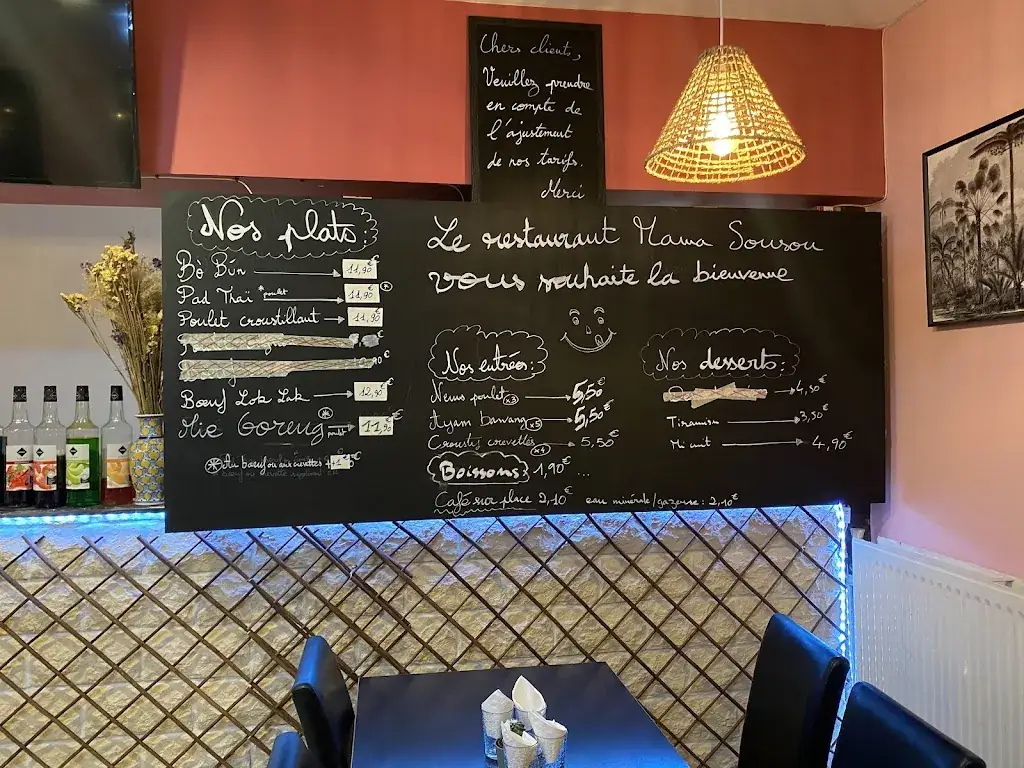 Chers clients,
Veuillez prendre
en compte de
l'ajustement
de nos tarifs.
Merci
Nos plats:
Bò Bún → 11,90€
Pad Thaï *poulet → 11,90€ *
Poulet croustillant → 11,90€
Bœuf Lok Lak → 12,90€
Mie Goreng * poulet → 11,90€
* Au bœuf ou aux crevettes
Le restaurant Mama Sousou
vous souhaite la bienvenue
Nos entrées:
Nems poulet x3 → 5,50€
Ayam bawang x5 → 5,50€
Crousty crevettes x4 → 5,50€
Boissons: 1,90€ ...
Café sur place 2,10€ eau minérale/gazeuse: 2,10€
Nos desserts:
→ 4,50€
Tiramisu → 3,50€
Mi cuit → 4,90€